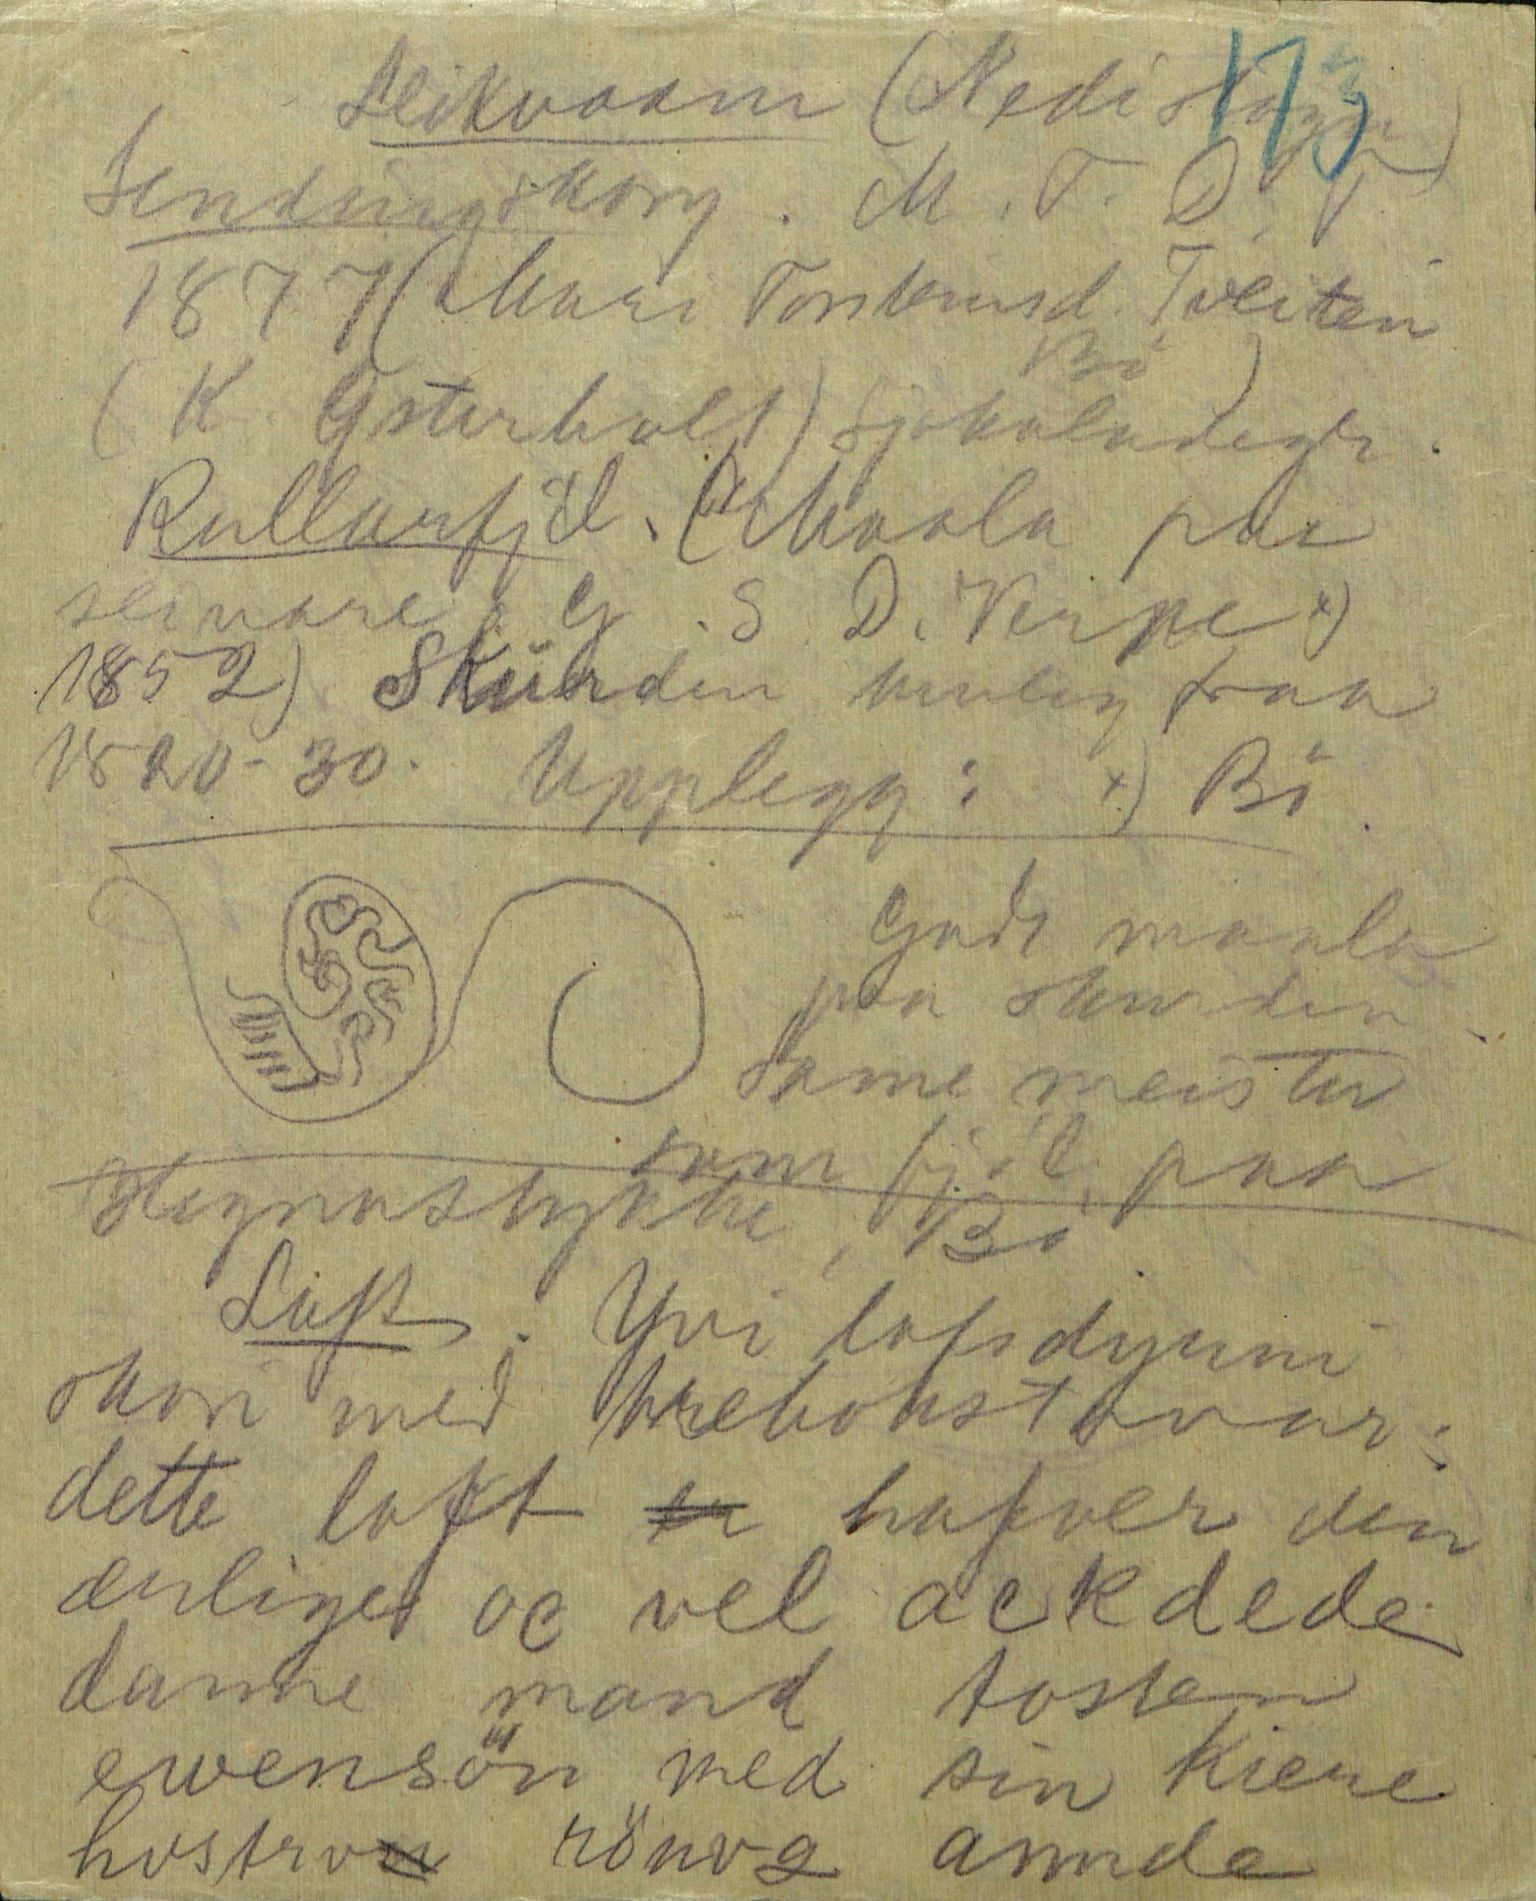 173
Leikvoam (Nedistogu)
Sendingskorg. M. T. D. T.
1877 (Mari Torsteinsd. Tveiten
Bö)
(K. Gsterholt) Sjokoladegr.
Rullarfjöl. (Maala paa
seinare, G. S. D. Verpe x)
1852) Skurden truleg fraa
1820-30. Upplegg: x) Bö.
Godt maala
paa skurden
Same meister
som fjöl paa
Hegnastykke, Bö
Loft. Yvi lofsdynni
skori med krebokstavar:
dette loft hafver den
ærliger oc vel ackdede
danne mand tosten
ewensön med sin kiere
hostro rönog amnde